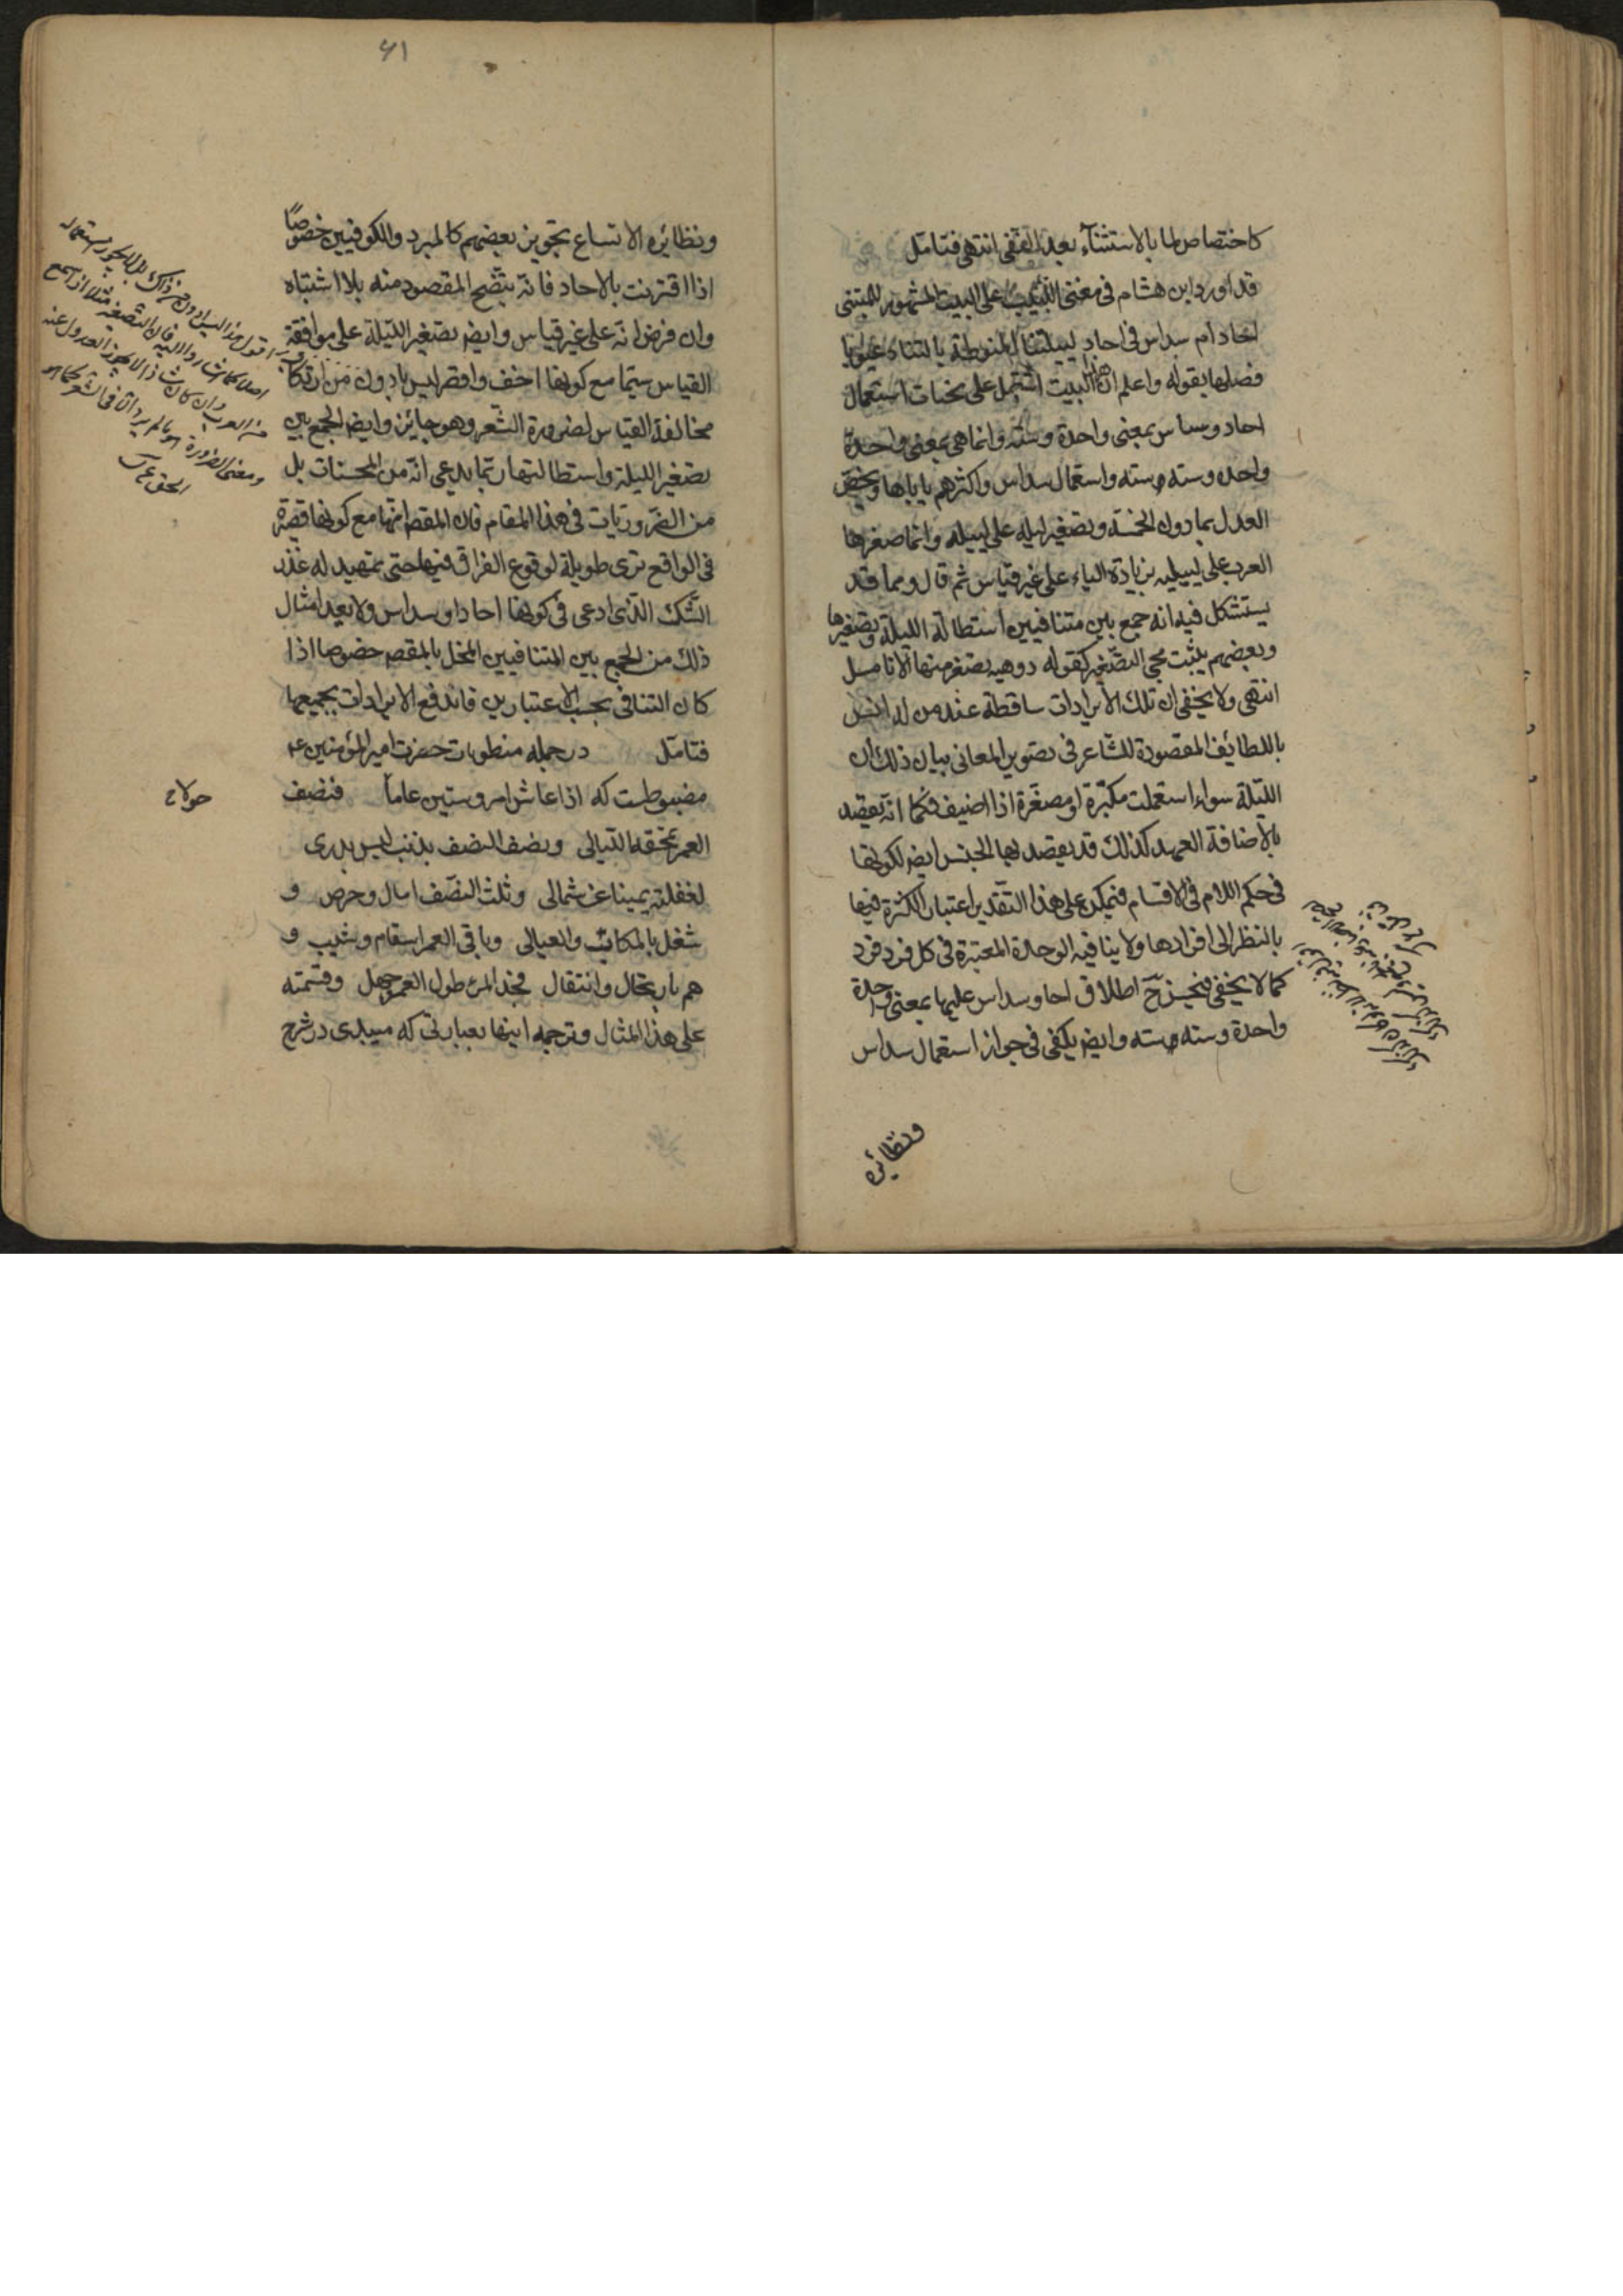 كاختصاص لما بالاستثناء بعد النفى انتهى فتامّل
قد اورد ابن هشام فى مغنى اللبيب على البيت المشهور للمتنبى
احاد ام سداس فى احاد لييلتنا المنوطة بالتناد عيوبا
فصلها بقوله واعلم ان هذا البيت اشتمل على لحنات استعمال
احاد وسداس بمعنى واحدة وستّه وانما هى بمعنى واحدة
واحده وسته وسته واستعمال سداس واكثرهم ياباها ويخصّ
العدل بما دون الخمسة وتصغير ليلة على لييله وانما صغرها
العرب على لييليه بزيادة الياء على غير قياس ثم قال ومما قد
يستشكل فيه انه جمع بين متنافيين استطالة الليلة وتصغيرها
وبعضهم يثبت مجى التصغير كقوله دوهيه تصفر منها الانامل
انتهى ولا يخفى ان تلك الايرادات ساقطة عند من له انس
باللطائف المقصودة للشاعر فى تصوير المعانى بيان ذلك ان
الليلة سواء استعملت مكبّرة او مصغّرة اذا اضيف فكما انه يقصد
بالاضافة العهد كذلك قد يقصد بها الجنس ايضا لكونها
فى حكم اللام فى الاقسام فيمكن على هذا التقدير اعتبار الكثرة فيها
بالنظر الى افرادها ولا ينافيه الوحدة المعتبرة فى كل فرد فرد
كما لا يخفى فيجوز ح اطلاق احاد وسداس عليها بمعنى واحدة
واحدة وسته وسته وايضا يكفى فى جواز استعمال سداس
ونظائره
۶۱
ونظائره الاتساع بتجويز بعضهم كالمبرد والكوفيين خصوصًا
اذا اقترنت بالاحاد فانه يتّضح المقصود منه بلا اشتباه
وان فرض انه على غير قياس وايضا تصغير الليلة على موافقة
القياس سيّما مع كونها اخف واقصر ليس بادون من ارتكاب
مخالفة القياس لضرورة الشّعر وهو جائز وايضا الجمع بين
تصغير الليلة واستطالتها ربّما يدعى انّه من المحسنات بل
من الضّروريّات فى هذا المقام فان المقصد انها مع كونها قصيرة
فى الواقع ترى طويلة لوقوع الفراق فيها حتى تمهيد له عذر
الشّك الذى ادعى فى كونها احاد او سداس ولا يعد امثال
ذلك من الجمع بين المتنافيين المخل بالمقصد خصوصا اذا
كان التنافى بحسب الاعتبارين فاندفع الايرادات بجميعها
فتامّل در جمله منظومات حضرت امير المؤمنين ع
مضبوطست كه اذا عاش امرؤ ستين عاماً فنصف
حولا خ
العمر تمحقه الليالى ونصف النصف يذهب ليس يدرى
لغفلته يمينا عن شمالى وثلث النصف امال وحرص و
شغل بالمكاسب والعيالى وباقى العمر اسقام وشيب و
هم بارتحال وانتقال فحبّ المرء طول العمر جهل وقسمته
على هذا المثال وترجمه اينها بعبارتى كه ميبدى در شرح